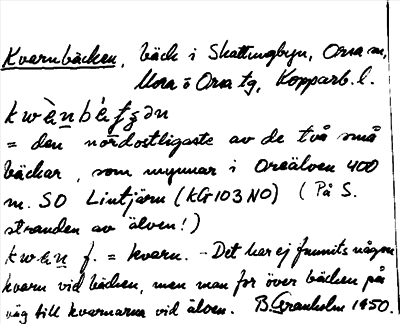 Kvarnbäcken, bäck i Skattungbyn, Orsa sn,
Mora o Orsa tg, Kopparb. l.
= den nordostligaste av de två små
bäckar, som mynnar i Oreälven 400
m. SO Lintjärn (KG103NO) (På S.
stranden av älven!)
f. = kvarn. - Det har ej funnits någon
kvarn vid bäcken, men man for över bäcken på
väg till kvarnarna vid älven. B. Granholm 1950.